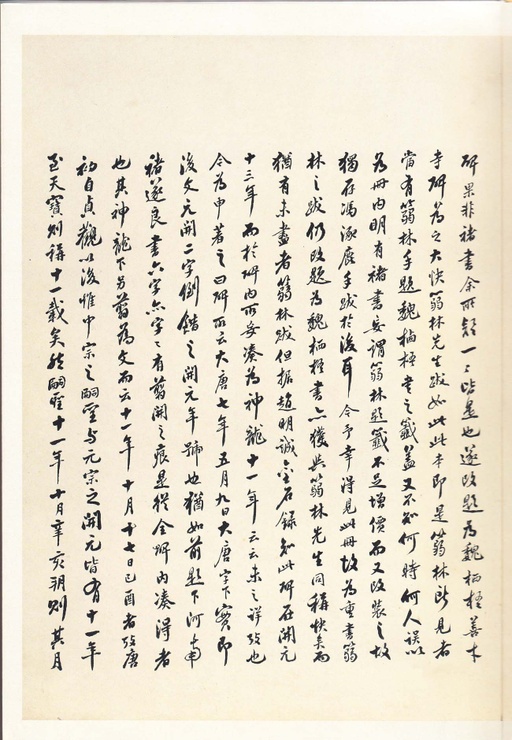 碑果非褚書余所題一一皆是也遂改題為魏栖梧善才
寺碑為之大快蒻林先生跋如此此本即是蒻林所見者
當有蒻林手題魏栖梧書之籤蓋又不知何時何人誤以
為冊內明有褚書妄謂蒻林題籤不足增價而又改裝之故
獨存馮涿鹿手跋於後耳今予幸得見此冊故為重書蒻
林之跋仍改題為魏栖梧書亦獲與蒻林先生同稱快矣而
猶有未盡者蒻林跋但據趙明誠金石錄知此碑在開元
十三年而於碑內所妄湊為神龍十一年云云未之詳攷也
今為申著之曰碑所云大唐七年五月九日大唐字下實即
後文元開二字倒錯之開元年號也猶如前題下河南
褚遂良書六字亦字字有翦開之痕是從全碑內湊得者
也其神龍下另翦為文而云十一年十月十七日己酉者攷唐
初自貞觀以後惟中宗之嗣聖与元宗之開元皆有十一年
至天寶則稱十一載矣然嗣聖十一年十月辛亥朔則其月